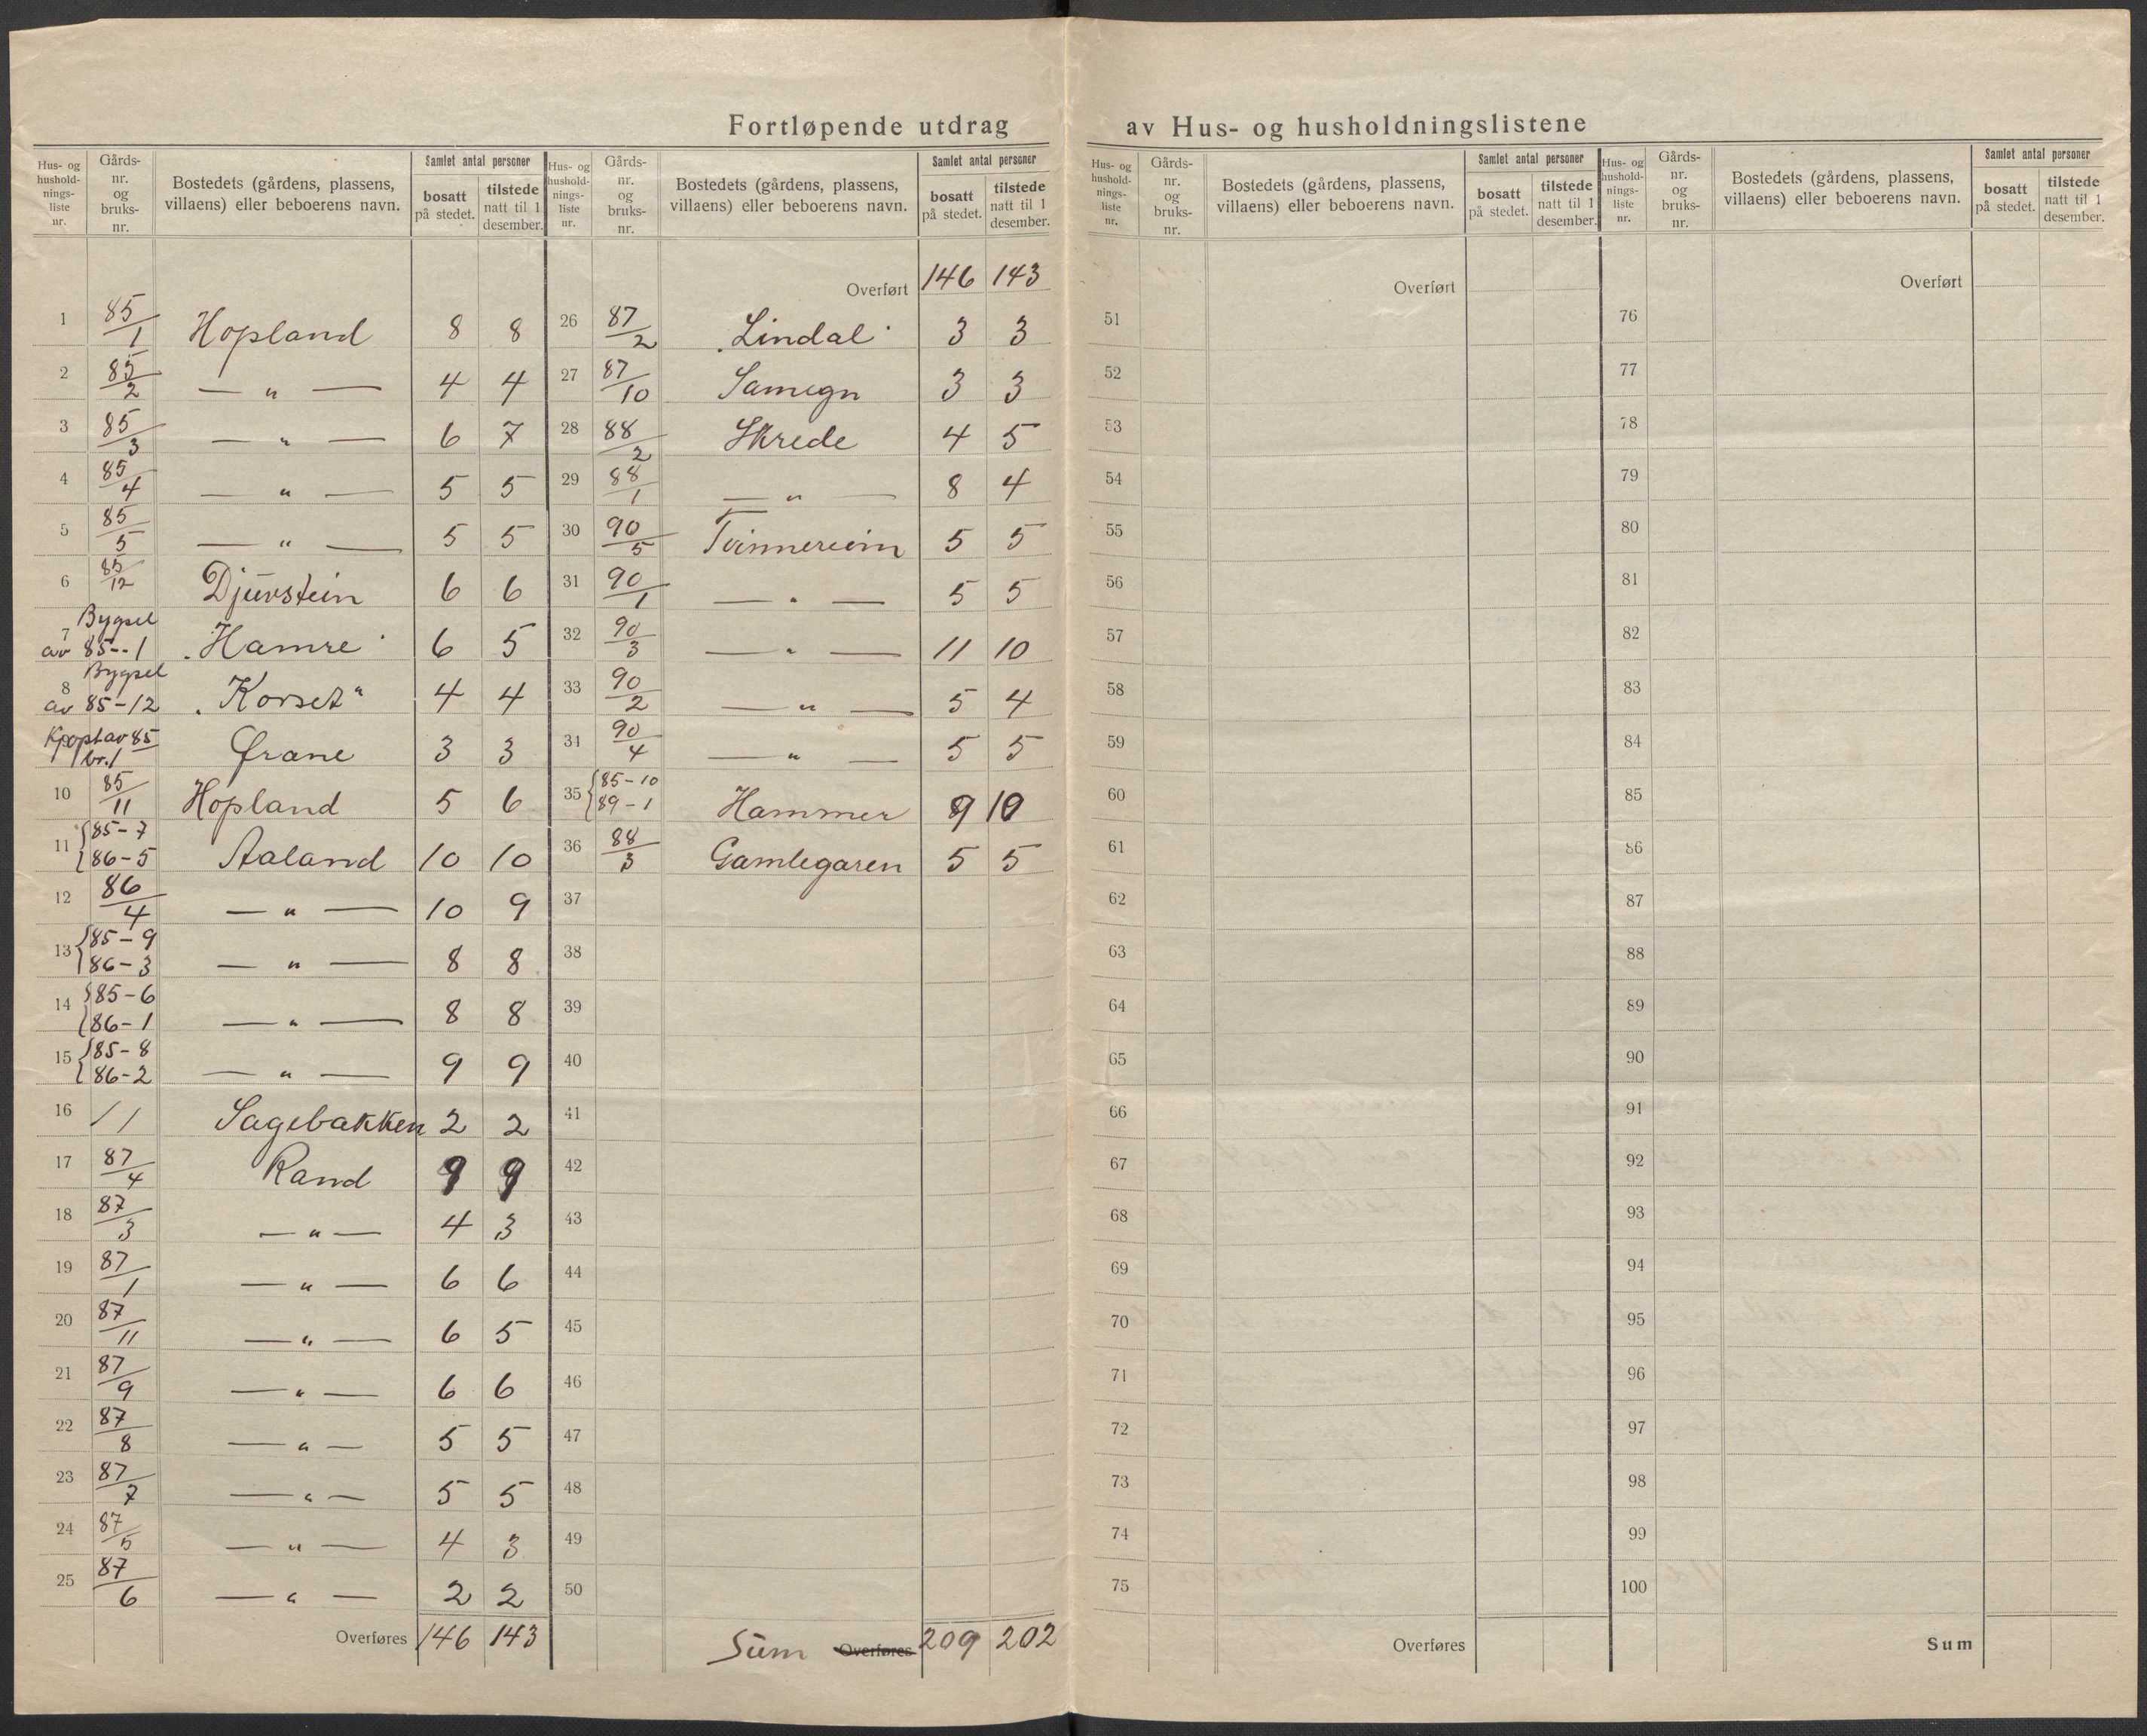 Fortløpende utdrag av Hus- og husholdningslistene
Hus- og hushold-nings-liste nr. Gårds-nr. og bruks-nr. Bostedets (gårdens, plassens, villaens) eller beboerens navn. Samlet antal personer bosatt på stedet. tilstede natt til 1 desember.
1 85/1 Hopland 8 8
2 85/2 — " — 4 4
3 85/3 — " — 6 7
4 85/4 — " — 5 5
5 85/5 — " — 5 5
6 85/12 Djuvstein 6 6
7 Bygsel av 85--1 "Hamre" 6 5
8 Bygsel av 85-12 "Korset" 4 4
av 85 br. 1 3 3
10 85/11 Hopland 5 6
11 {85-7 86-5 Aaland 10 10
12 86/4 — " — 10 9
13 {85-9 86-3 — " — 8 8
14 {85-6 86-1 — " — 8 8
15 {85-8 86-2 — " — 9 9
16 / / Sagebakken 2 2
17 87/4 Rand 9 9
18 87/3 — " — 4 3
19 87/1 — " — 6 6
20 87/11 — " — 6 5
21 87/9 — " — 6 6
22 87/8 — " — 5 5
23 87/7 — " — 5 5
24 87/5 — " — 4 3
25 87/6 — " — 2 2
Overføres 146 143
Hus- og hushold-nings-liste nr. Gårds-nr. og bruks-nr. Bostedets (gårdens, plassens, villaens) eller beboerens navn. Samlet antal personer bosatt på stedet. tilstede natt til 1 desember.
Overført 146 143
26 87/2 "Lindal" 3 3
27 87/10 Samegn 3 3
28 88/2 Skrede 4 5
29 88/1 — " — 8 4
30 90/5 Tvinnereim 5 5
31 90/1 — " — 5 5
32 90/3 — " — 11 10
33 90/2 — " — 5 4
34 90/4 — " — 5 5
35 {85-10 89-1 Hammer 9 10
36 88/3 Gamlegaren 5 5
37
38
39
40
41
42
43
44
45
46
47
48
49
50
Sum Overføres 209 202
Hus- og hushold-nings-liste nr. Gårds-nr. og bruks-nr. Bostedets (gårdens, plassens, villaens) eller beboerens navn. Samlet antal personer bosatt på stedet. tilstede natt til 1 desember.
Overført
51
52
53
54
55
56
57
58
59
60
61
62
63
64
65
66
67
68
69
70
71
72
73
74
75
Overføres
Hus- og hushold-nings-liste nr. Gårds-nr. og bruks-nr. Bostedets (gårdens, plassens, villaens) eller beboerens navn. Samlet antal personer bosatt på stedet. tilstede natt til 1 desember.
Overført
76
77
78
79
80
81
82
83
84
85
86
87
88
89
90
91
92
93
94
95
96
97
98
99
100
Sum